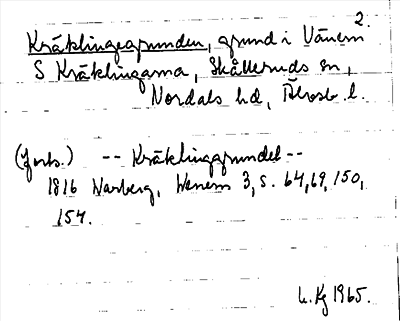 2.
Kräklingegrunden, grund i Vänern
S Kräklingarna, Skålleruds sn,
Nordals hd, Älvsb. l.
(forts.) -- Kräklinggrundet --
1816 Warberg, Wenern 3, s. 64, 69, 150,
154.
1965.